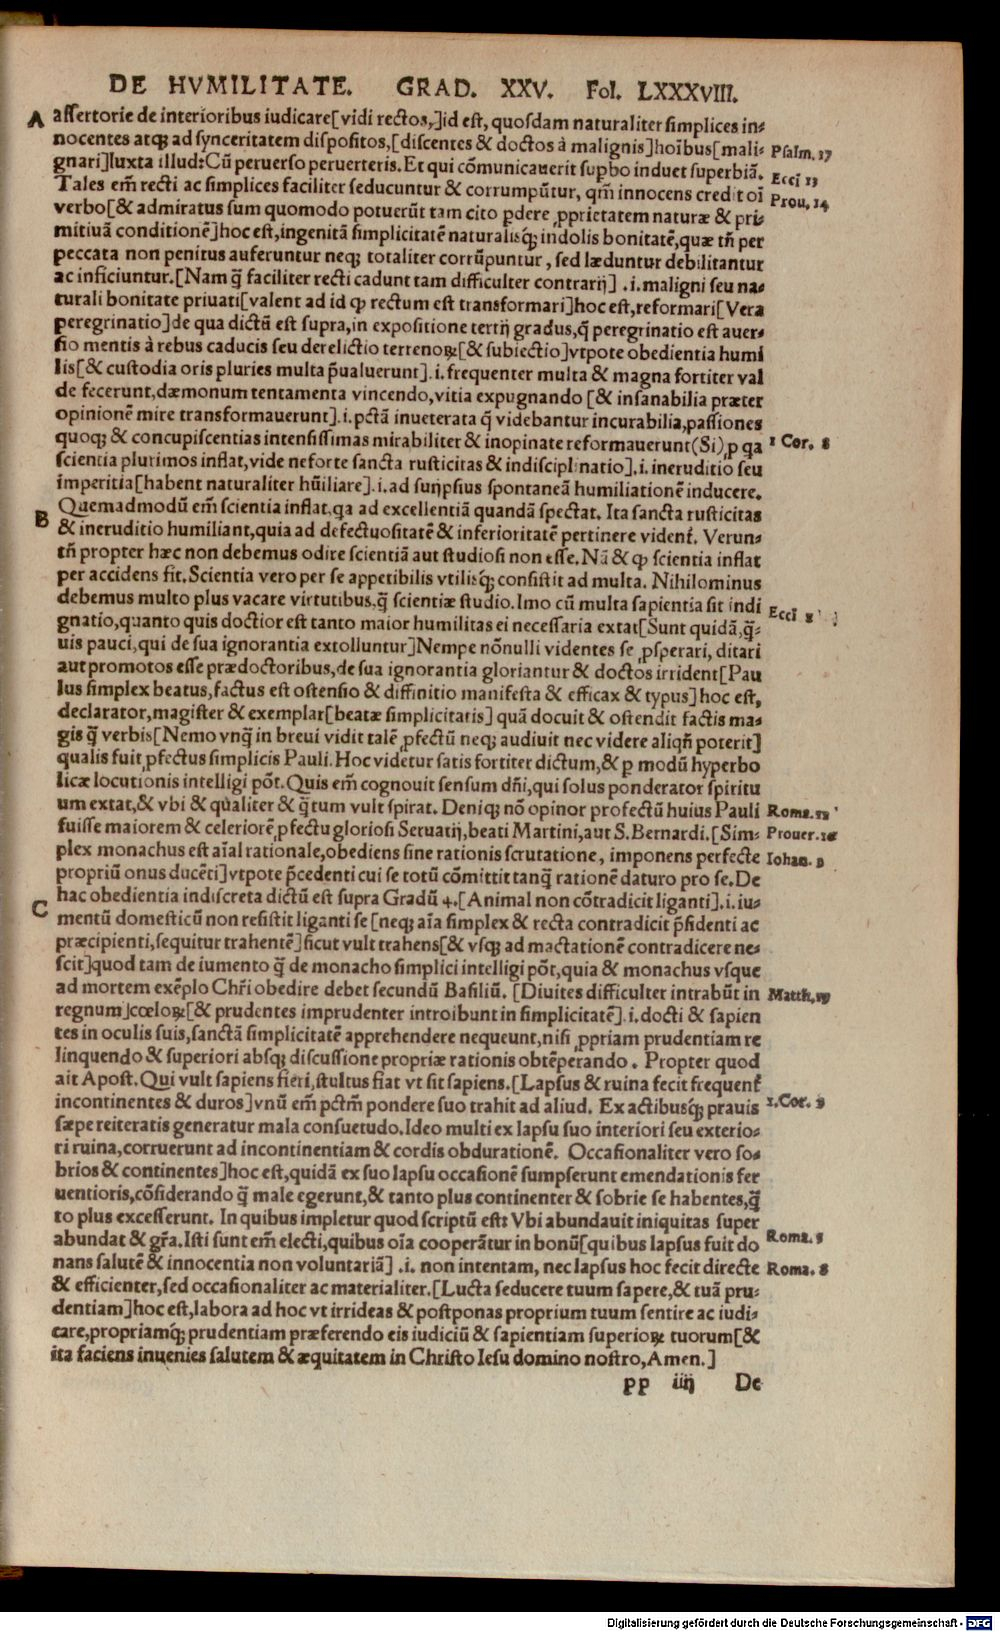 DE HVMILITATE. GRAD. XXV. Fol. LXXXVIII.
A assertorie de interioribus iudicare[vidi rectos,]id est, quosdam naturaliter simplices in-
nocentes atq; ad synceritatem dispositos,[discentes & doctos à malignis]hoībus[mali- Psalm. 17
gnari]Iuxta illud: Cū peruerso peruerteris. Et qui cōmunicauerit supbo induet superbiā. Eccī 13
Tales em̄ recti ac simplices faciliter seducuntur & corrumpūtur, qm̄ innocens credit oī Prou. 14
verbo[& admiratus sum quomodo potuerūt tam cito ꝑdere ꝓprietatem naturæ & pri-
mitiuā conditionē]hoc est,ingenitā simplicitatē naturalisq; indolis bonitatē,quæ tn̄ per
peccata non penitus auferuntur neq; totaliter corrūpuntur, sed læduntur debilitantur
ac inficiuntur.[Nam q̄ faciliter recti cadunt tam difficulter contrarij] .i.maligni seu na-
turali bonitate priuati[valent ad id qꝫ rectum est transformari]hoc est,reformari[Vera
peregrinatio]de qua dictū est supra,in expositione tertij gradus,q̄ peregrinatio est auer-
sio mentis à rebus caducis seu derelictio terrenoꝝ[& subiectio]vtpote obedientia humi
lis[& custodia oris pluries multa p̄ualuerunt].i.frequenter multa & magna fortiter val
de fecerunt,dæmonum tentamenta vincendo,vitia expugnando [& insanabilia præter
opinionē mire transformauerunt].i.pctā inueterata q̄ videbantur incurabilia,passiones
quoq; & concupiscentias intensissimas mirabiliter & inopinate reformauerunt(Si)ꝓ qa 1 Cor. 8
scientia plurimos inflat,vide ne forte sancta rusticitas & indisciplinatio].i.ineruditio seu
imperitia[habent naturaliter hūiliare].i.ad suijpsius spontaneā humiliationē inducere.
B Quemadmodū em̄ scientia inflat,qa ad excellentiā quandā spectat. Ita sancta rusticitas
& ineruditio humiliant,quia ad defectuositatē & inferioritatē pertinere videnť. Verun-
tn̄ propter hæc non debemus odire scientiā aut studiosi non esse. Nā & qꝫ scientia inflat
per accidens fit. Scientia vero per se appetibilis vtilisq; consistit ad multa. Nihilominus
debemus multo plus vacare virtutibus,q̄ scientiæ studio. Imo cū multa sapientia sit indi Eccī 1
gnatio,quanto quis doctior est tanto maior humilitas ei necessaria extat[Sunt quidā,q̄-
uis pauci,qui de sua ignorantia extolluntur]Nempe nōnulli videntes se ꝓsperari, ditari
aut promotos esse prædoctoribus,de sua ignorantia gloriantur & doctos irrident[Pau
lus simplex beatus,factus est ostensio & diffinitio manifesta & efficax & typus]hoc est,
declarator,magister & exemplar[beatæ simplicitatis] quā docuit & ostendit factis ma-
gis q̄ verbis[Nemo vnq̄ in breui vidit talē ꝓfectū neq; audiuit nec videre aliqn̄ poterit]
qualis fuit ꝓfectus simplicis Pauli. Hoc videtur satis fortiter dictum,& ꝑ modū hyperbo
licæ locutionis intelligi pōt. Quis em̄ cognouit sensum dn̄i,qui solus ponderator spiritu
um extat,& vbi & qualiter & q̄tum vult spirat. Deniq; nō opinor profectū huius Pauli Roma. 11
fuisse maiorem & celeriorē ꝓfectu gloriosi Seruatij,beati Martini,aut S.Bernardi.[Sim- Prouer. 16
plex monachus est aīal rationale,obediens sine rationis scrutatione, imponens perfecte Iohan. 3
propriū onus ducēti]vtpote p̄cedenti cui se totū cōmittit tanq̄ rationē daturo pro se. De
hac obedientia indiscreta dictū est supra Gradū 4.[Animal non cōtradicit liganti].i.iu-
C mentū domesticū non resistit liganti se[neq; aīa simplex & recta contradicit p̄sidenti ac
præcipienti,sequitur trahentē]sicut vult trahens[& vsq; ad mactationē contradicere ne-
scit]quod tam de iumento q̄ de monacho simplici intelligi pōt,quia & monachus vsque
ad mortem exēplo Chr̄i obedire debet secundū Basiliū. [Diuites difficulter intrabūt in Matth. 19
regnum]cœloꝝ[& prudentes imprudenter introibunt in simplicitatē].i.docti & sapien
tes in oculis suis,sanctā simplicitatē apprehendere nequeunt,nisi ꝓpriam prudentiam re
linquendo & superiori absq; discussione propriæ rationis obtēperando. Propter quod
ait Apost. Qui vult sapiens fieri,stultus fiat vt sit sapiens.[Lapsus & ruina fecit frequenť
incontinentes & duros]vnū em̄ pctm̄ pondere suo trahit ad aliud. Ex actibusq; prauis 1.Cor. 3
sæpe reiteratis generatur mala consuetudo. Ideo multi ex lapsu suo interiori seu exterio-
ri ruina,corruerunt ad incontinentiam & cordis obdurationē. Occasionaliter vero so-
brios & continentes]hoc est,quidā ex suo lapsu occasionē sumpserunt emendationis fer
uentioris,cōsiderando q̄ male egerunt,& tanto plus continenter & sobrie se habentes,q̄
to plus excesserunt. In quibus impletur quod scriptū est: Vbi abundauit iniquitas super
abundat & gr̄a. Isti sunt em̄ electi,quibus oīa cooperātur in bonū[quibus lapsus fuit do Roma. 5
nans salutē & innocentia non voluntariā] .i. non intentam, nec lapsus hoc fecit directe Roma. 8
& efficienter,sed occasionaliter ac materialiter.[Lucta seducere tuum sapere,& tuā pru-
dentiam]hoc est,labora ad hoc vt irrideas & postponas proprium tuum sentire ac iudi-
care,propriamq; prudentiam præferendo eis iudiciū & sapientiam superioꝝ tuorum[&
ita faciens inuenies salutem & æquitatem in Christo Iesu domino nostro,Amen.]
pp iiij De
Digitalisierung gefördert durch die Deutsche Forschungsgemeinschaft - DFG